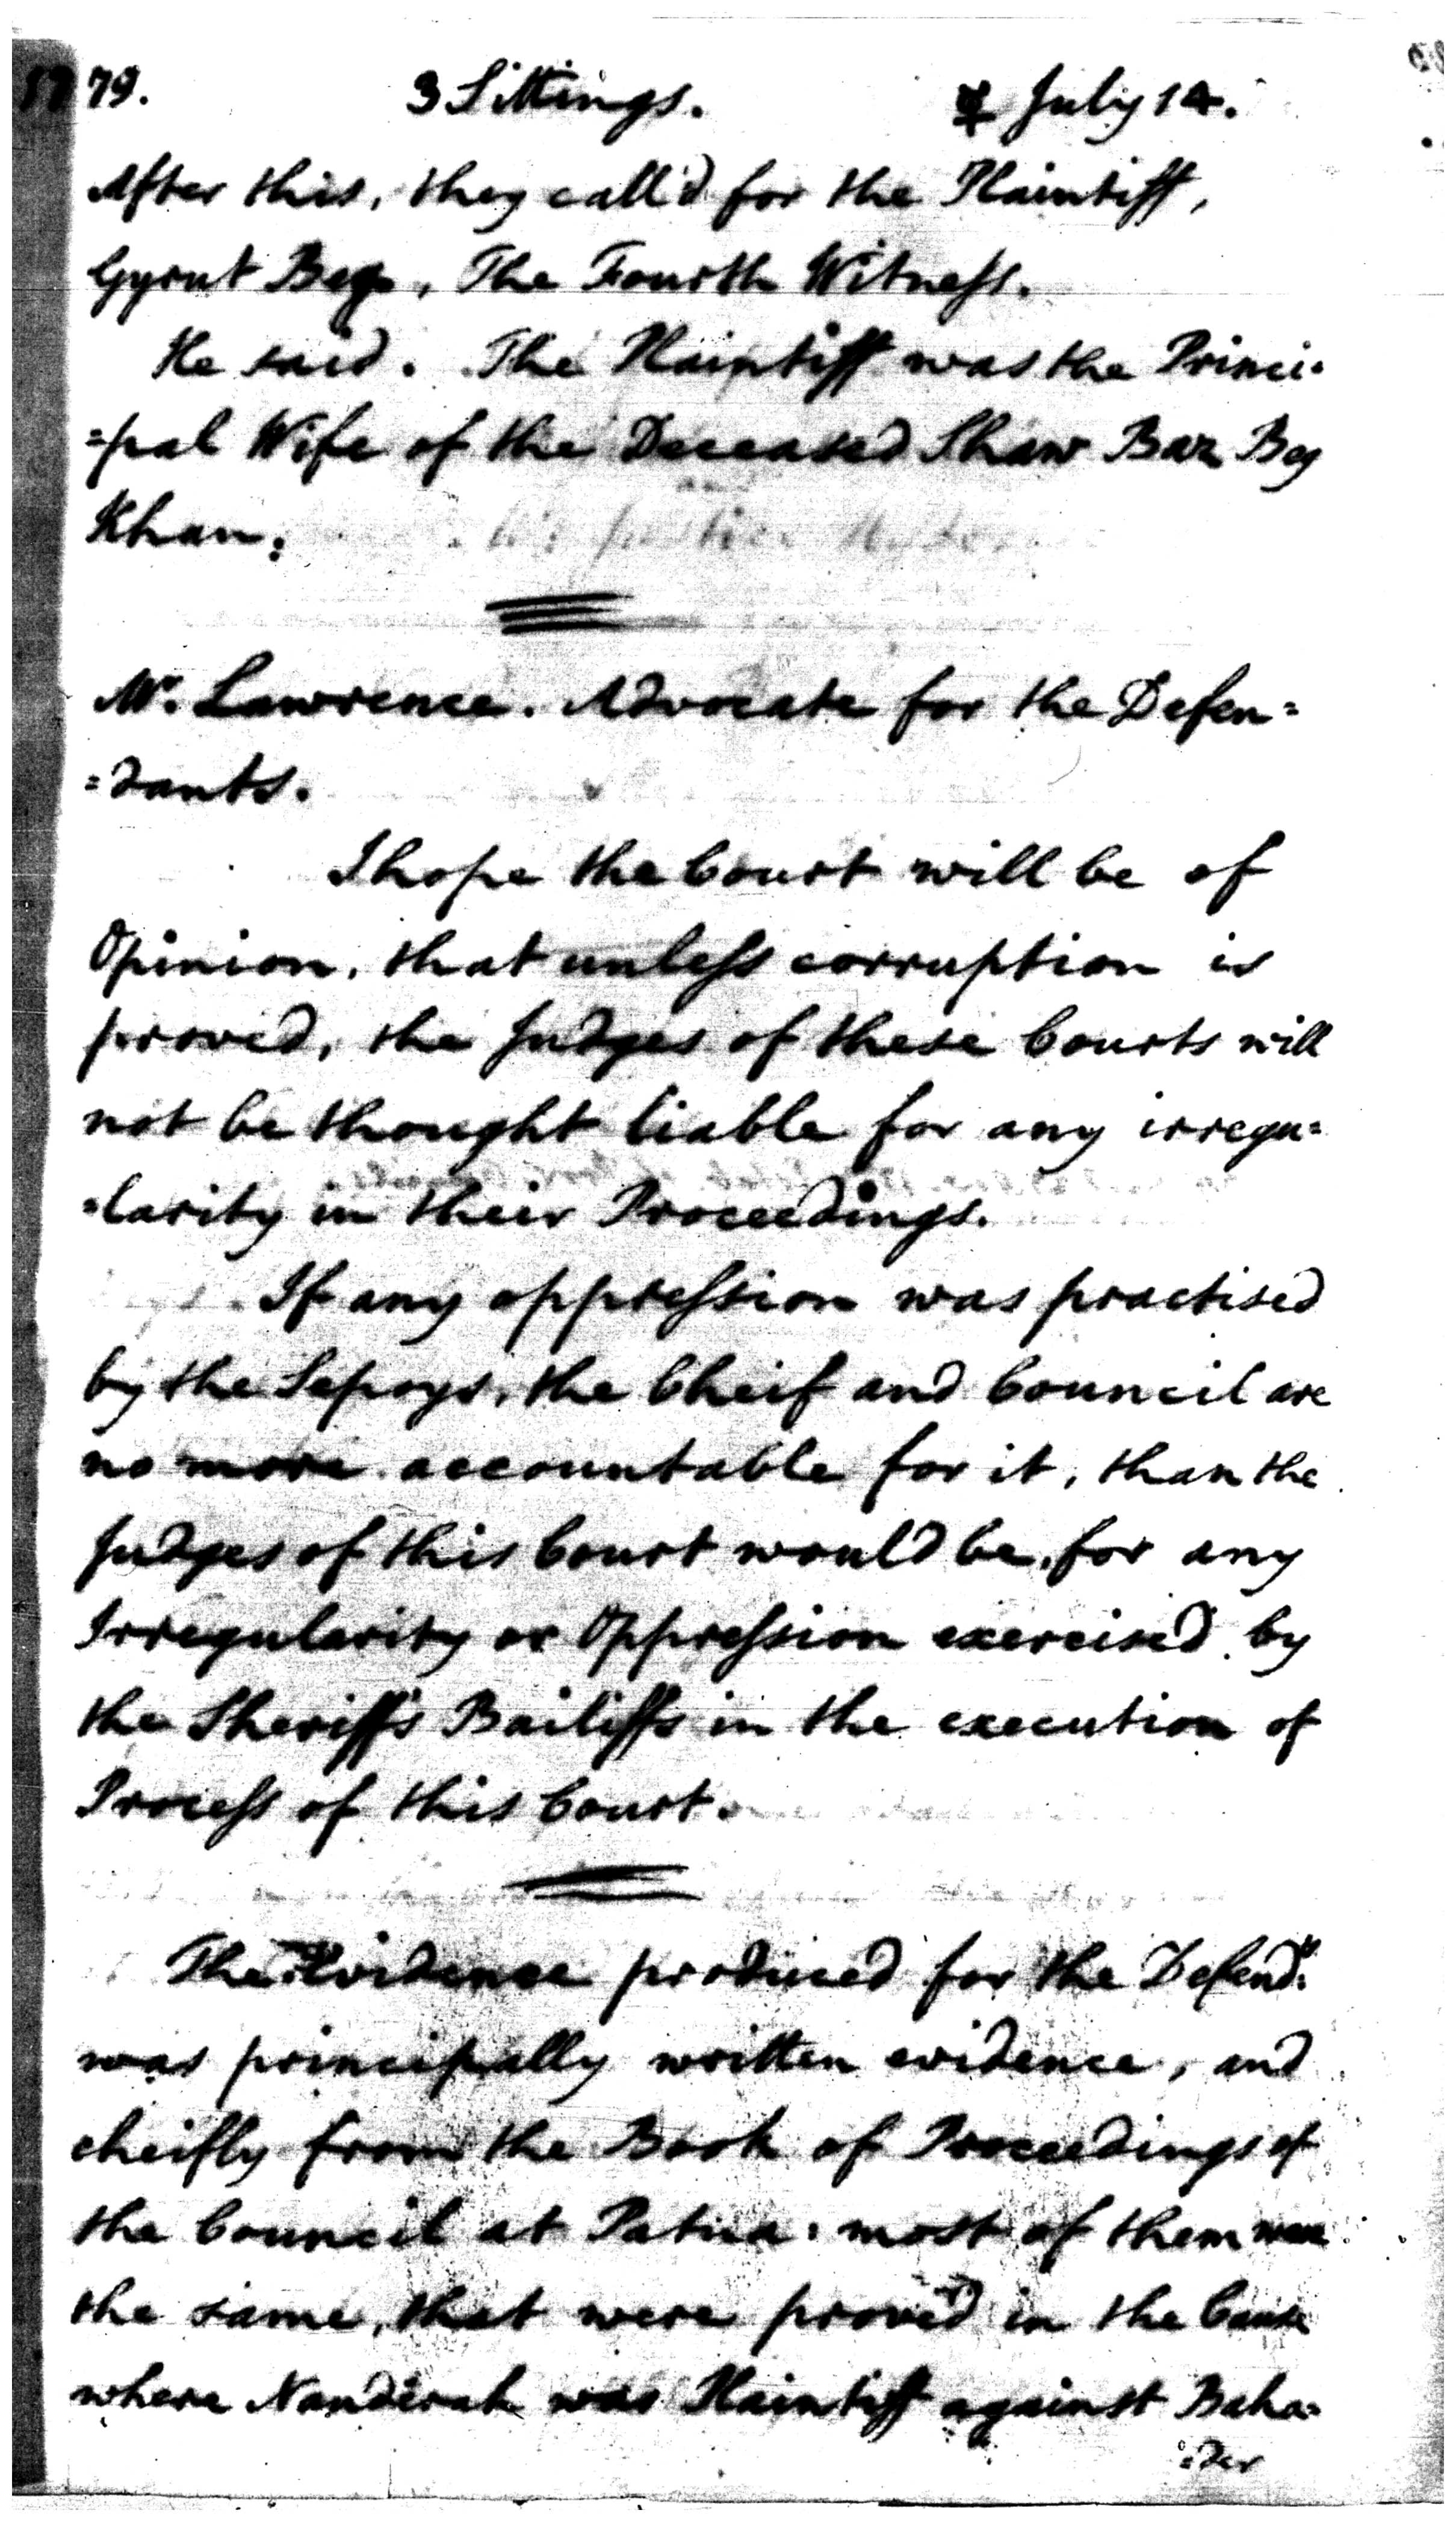 1779. 3 Sittings. ☿ July 14.
After this, they call'd for the Plaintiff,
Gyrut Beg, The Fourth Witness.
He said. The Plaintiff was the Princi-
=pal Wife of the Deceased Shaw Baz Beg
Khan.
Mr. Lawrence. Advocate for the Defen=
=dants.
I hope the Court will be of
Opinion, that unless corruption is
proved, the Judges of these Courts will
not be thought liable for any irregu=
=larity in their Proceedings.
If any oppression was practised
by the Sepoys, the Cheif and Council are
no more accountable for it, than the
Judges of this Court would be, for any
Irregularity or Oppression exercised by
the Sheriff's Bailiffs in the execution of
Process of this Court.
The Evidence produced for the Defendts.
was principally written evidence, and
cheifly from the Book of Proceedings of
the Council at Patna: most of them were
the same, that were proved in the Cause
where Nanderah was Plaintiff against Baha=
=der